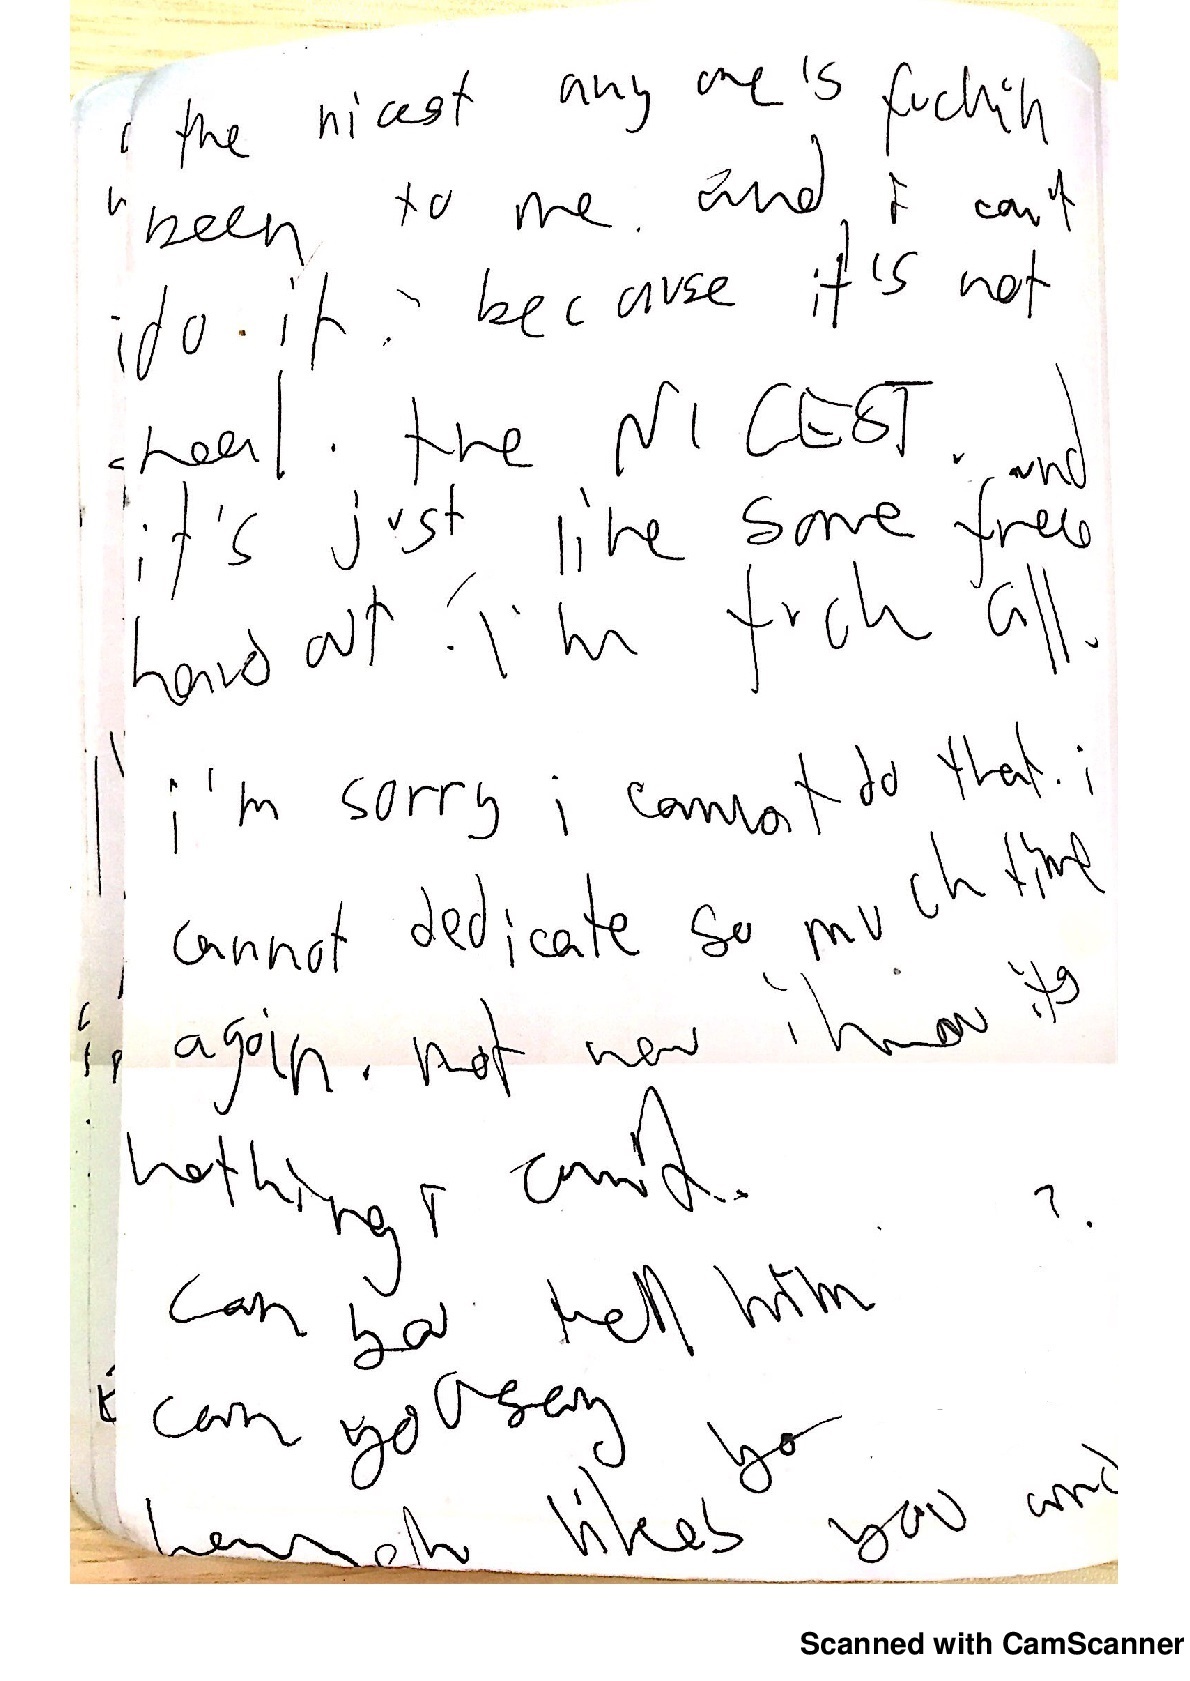 the nicest any one's fuckin
been to me. and I can't
do it. because it's not
real. the NICEST. and
it's just like some free
hand out. i'm fuck all.
i'm sorry i cannot do that. i
cannot dedicate so much time
again. not now i know its
nothing I can't.
?.
can you tell him
can you say yo
hannah likes you and
Scanned with CamScanner